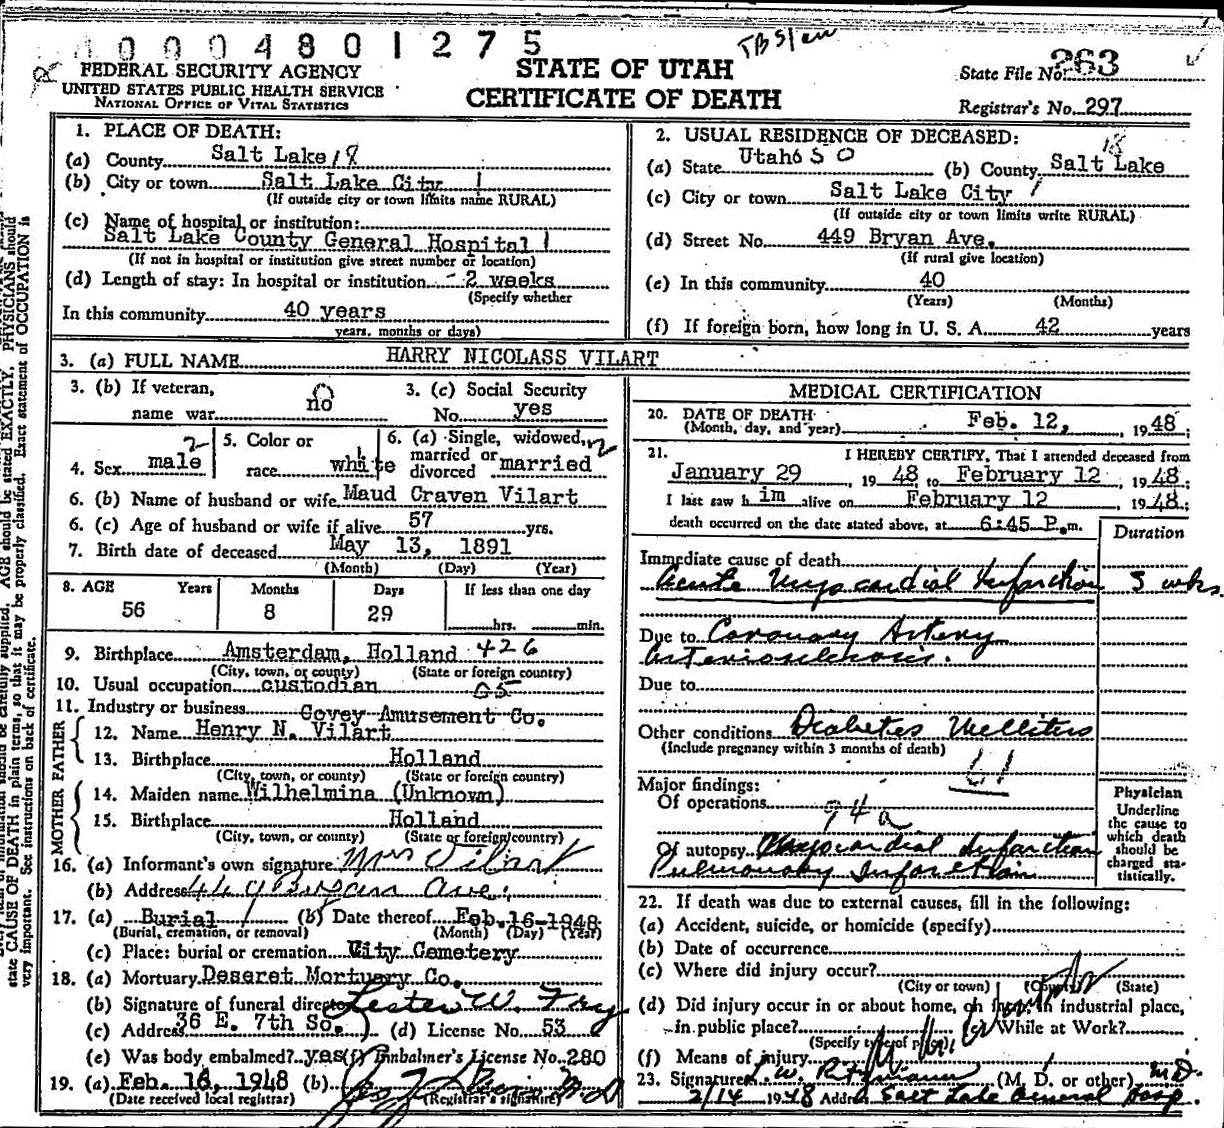 10004801275
TBS/aw
FEDERAL SECURITY AGENCY
UNITED STATES PUBLIC HEALTH SERVICE
NATIONAL OFFICE OF VITAL STATISTICS
STATE OF UTAH
CERTIFICATE OF DEATH
State File No. 263
Registrar's No. 297
1. PLACE OF DEATH:
(a) County Salt Lake 18
(b) City or town Salt Lake City 1
(If outside city or town limits name RURAL)
(c) Name of hospital or institution:
Salt Lake County General Hospital 1
(If not in hospital or institution give street number or location)
(d) Length of stay: In hospital or institution 2 weeks
(Specify whether
In this community 40 years
years, months or days)
2. USUAL RESIDENCE OF DECEASED:
18
(a) State Utah 650 (b) County Salt Lake
(c) City or town Salt Lake City 1
(If outside city or town limits write RURAL)
(d) Street No. 449 Bryan Ave.
(If rural give location)
(e) In this community 40
(Years) (Months)
(f) If foreign born, how long in U. S. A. 42 years
3. (a) FULL NAME HARRY NICOLASS VILART
3. (b) If veteran, name war no
3. (c) Social Security No. yes
4. Sex male 2
5. Color or race white
6. (a) Single, widowed, married or divorced married 2
6. (b) Name of husband or wife Maud Craven Vilart
6. (c) Age of husband or wife if alive 57 yrs.
7. Birth date of deceased May 13, 1891
(Month) (Day) (Year)
8. AGE Years Months Days If less than one day
56 8 29 hrs. min.
9. Birthplace Amsterdam, Holland 426
(City, town, or county) (State or foreign country)
10. Usual occupation custodian 05
11. Industry or business Covey Amusement Co.
FATHER
12. Name Henry N. Vilart
13. Birthplace Holland
(City, town, or county) (State or foreign country)
MOTHER
14. Maiden name Wilhelmina (Unknown)
15. Birthplace Holland
(City, town, or county) (State or foreign country)
16. (a) Informant's own signature Mrs Vilart
(b) Address 449 Bryan Ave.
17. (a) Burial (b) Date thereof Feb. 16-1948
(Burial, cremation, or removal) (Month) (Day) (Year)
(c) Place: burial or cremation City Cemetery
18. (a) Mortuary Deseret Mortuary Co.
(b) Signature of funeral director Lester W. Fry
(c) Address 36 E. 7th So. (d) License No. 53
(e) Was body embalmed? yes (f) Embalmer's License No. 280
19. (a) Feb. 16, 1948 (b) M.D
(Date received local registrar) (Registrar's signature)
MEDICAL CERTIFICATION
20. DATE OF DEATH Feb. 12, 1948;
(Month, day, and year)
21. I HEREBY CERTIFY, That I attended deceased from
January 29, 1948 to February 12, 1948;
I last saw him alive on February 12 1948;
death occurred on the date stated above, at 6:45 P.m.
Duration
Immediate cause of death
Acute Myocardial Infarction 3 wks.
Due to Coronary Artery
Arteriosclerosis.
Due to
Other conditions Diabetes Mellitus
(Include pregnancy within 3 months of death)
61
Major findings:
Of operations
94a
Of autopsy Myocardial Infarction
Pulmonary Infarction
Physician
Underline
the cause to
which death
should be
charged sta-
tistically.
22. If death was due to external causes, fill in the following:
(a) Accident, suicide, or homicide (specify)
(b) Date of occurrence
(c) Where did injury occur?
(City or town) (County) (State)
(d) Did injury occur in or about home, on farm, in industrial place,
in public place? (e) While at Work?
(Specify type of place)
(f) Means of injury
23. Signature (M. D. or other) M.D.
2/14 1948 Address Salt Lake General Hosp.
state CAUSE OF DEATH in plain terms, so that it may be properly classified. Exact statement of OCCUPATION is
very important. See instructions on back of certificate.